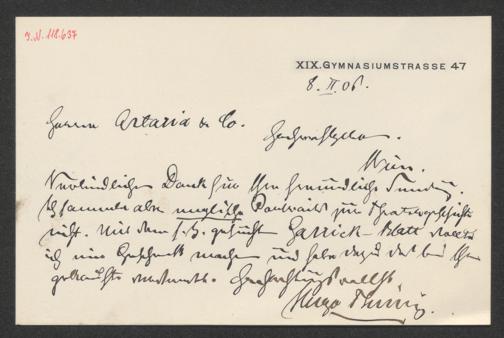 J.N. 118.637
XIX. GYMNASIUMSTRASSE 47
8. II. 06.
Herren Artaria & Co.
Hochwohlgeboren.
Wien.
Verbindlichen Dank für Ihre freundliche Sendung.
Ich sammle aber englische Portraits zur Theatergeschichte
nicht. Mit dem s. Z. gesuchten Garrick-Blatt wollte
ich ein Geschenk machen und habe dazu das bei Ihnen
gekaufte verwendet. Hochachtungsvollst
Hugo Thimig.